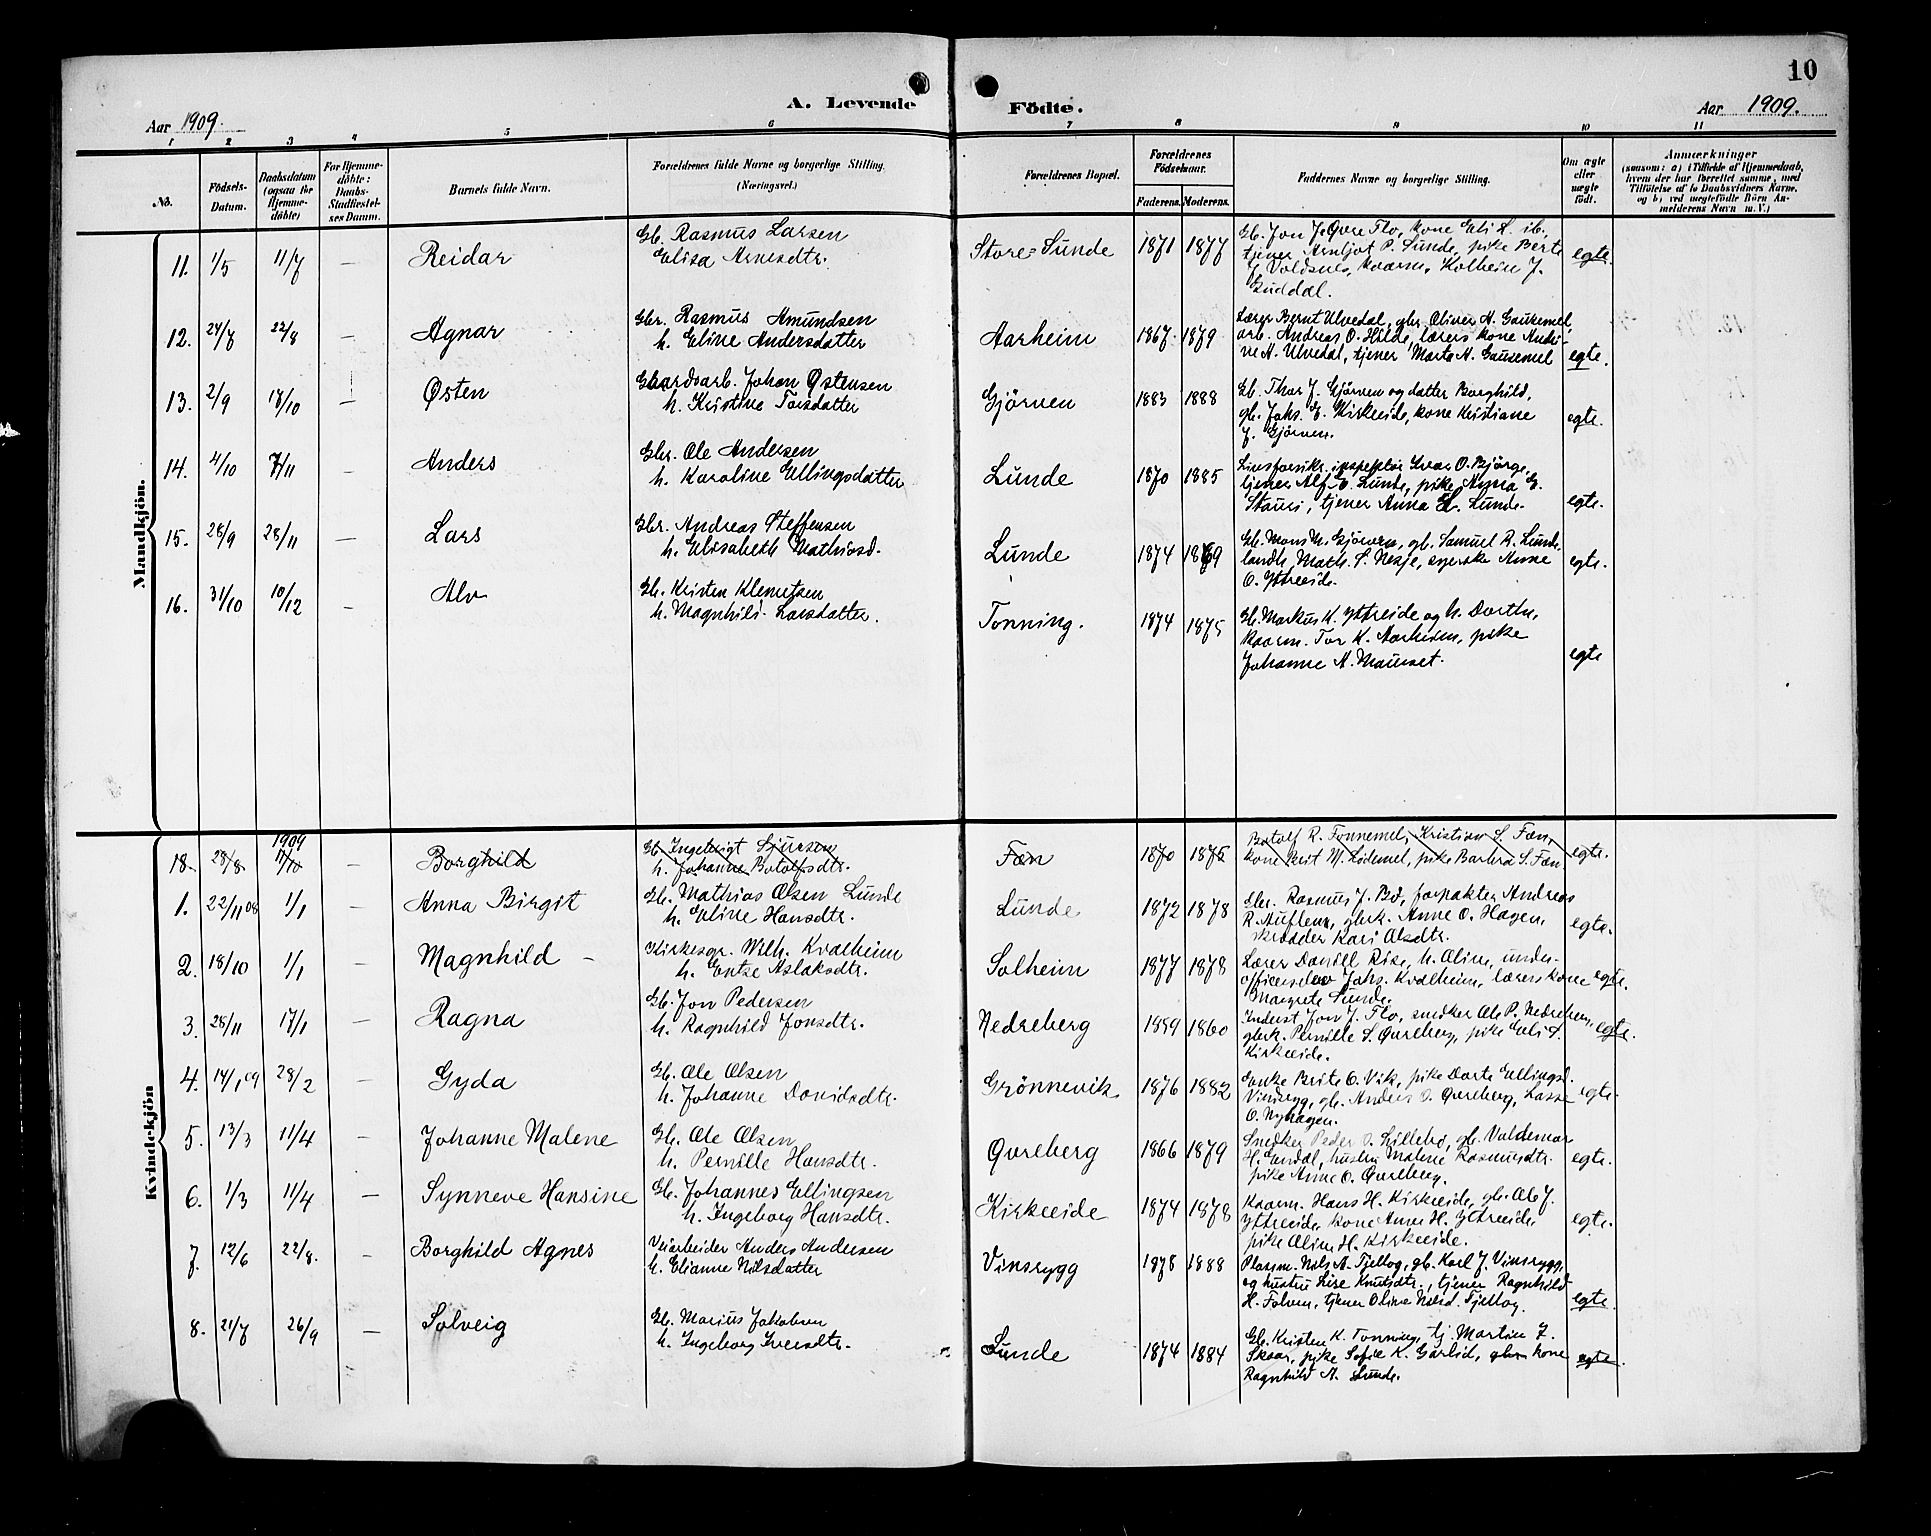 10
A. Levende Födte.
Aar 1909.
Aar 1909.
1 2 3 4 5 6 7 8 9 10 11
No.
Födsels-Datum.
Daabsdatum (ogsaa for Hjemmedöbte)
For Hjemmedöbte: Daabs-Stadfæstelses Datum.
Barnets fulde Navn.
Forældrenes fulde Navne og borgerlige Stilling. (Næringsvei.)
Forældrenes Bopæl.
Forældrenes Födselsaar.
Faderens. Moderens.
Faddernes Navne og borgerlige Stilling.
Om ægte eller uægte födt.
Anmærkninger
(saasom: a) i Tilfælde af Hjemmedaab, hvem der har forrettet samme, med Tilföielse af to Daabsvidners Navne, og b) ved uægtefödte Börn Anmelderens Navn m. V.)
Mandkjön.
11. 1/5 11/7 — Reidar Gb. Rasmus Larsen Store-Lunde 1871 1877 Gb. Jon J. Øvre Flo, kone Eli L. ib.,
Elisa Arnesdtr. tjener Arnljot P. Lunde, pike Berte
J. Voldsnes, kaarm. Kolbein J. egte.
Guddal.
12. 24/7 22/8 — Agnar Gbr. Rasmus Amundsen Aarheim 1867 1879 Lærer Bernt Ulvedal, gbr. Oliver A. Gausemel,
h. Eline Andersdatter arb. Andreas O. Hilde, lærers kone Andri-
ne A. Ulvedal, tjener Marta A. Gausemel egte.
13. 2/9 17/10 — Østen Gaardsarb. Johan Østensen Gjörven 1883 1888 Gb. Thor J. Gjörven og datter Borghild,
h. Kristine Torsdatter gb. Johs. E. Kirkeeide, kone Kristiane
J. Gjörven. egte.
14. 4/10 7/11 — Anders Gbr. Ole Andersen Lunde 1870 1885 Livsforsikr. inspektør Ivar O. Bjørge,
h. Karoline Ellingsdatter tjener Alf E. Lunde, pike Anna E.
Stauri, tjener Anna L. Lunde. egte.
15. 28/9 28/11 — Lars Gbr. Andreas Steffensen Lunde 1874 1869 Gb. Mons M. Gjörven, gb. Samuel R. Lunde,
h. Elisabeth Mathiasd. landh. Math. S. Nesje, syerske Anne
O. Ytreeide. egte.
16. 31/10 10/12 — Alv Gb. Kristen Klemetsen Tonning. 1874 1875 Gb. Markus K. Ytreeide og h. Dorthe,
h. Magnhild Larsdatter. kaarm. Tor K. Aarheim, pike
Johanne A. Mauset. egte
Kvindekjön
1909
18. 28/8 17/10 — Borghild Gb. Ingebrigt Sjursen Fæn 1870 1875 Botolf R. Tonnemel, Kristian S. Fæn,
h. Johanne Botolfsdtr. kone Brit M. Lødemel, pike Barbra S. Fæn egte.
1. 22/11 08 1/1 — Anna Birgit Gb. Mathias Olsen Lunde Lunde 1872 1878 Gbr. Rasmus J. Bø, forpakter Andreas
h. Eline Hansdtr. R. Auflem, gbrk. Anne O. Hagen, egte.
skrædder Kari Olsdtr.
2. 18/10 1/1 — Magnhild — Kirkesgr. Wilh. Kvalheim Solheim 1877 1878 Lærer Daniel Rise, h. Oline, under-
h. Entse Aslaksdtr. officerselev Johs. Kvalheim, lærers kone egte.
Margrete Lunde.
3. 28/11 17/1 — Ragna Gb. Jon Pedersen Nedreberg 1859 1860 Inderst Jon J. Flo, snedker Ole P. Nedreberg,
h. Ragnhild Jonsdtr. gbrk. Pernille S. Qvreberg, pike Eli S. egte.
Kirkeeide.
4. 14/1 09 28/2 — Gyda Gb. Ole Olsen Grönnevik 1876 1882 Enke Brite O. Vik, pike Dorte Ellingsd.
h. Johanne Davidsdtr. Vinsrygg, gb. Anders O. Qvreberg, Lasse egte.
O. Nyhagen.
5. 13/3 11/4 — Johanne Malene Gb. Ole Olsen Qvreberg 1866 1879 Snedker Peder O. Lillebø, gb. Valdemar
h. Pernille Hansdtr. H. Endal, hustru Malene Rasmusdtr. egte.
pike Anne O. Qvreberg.
6. 1/3 11/4 — Synneve Hansine Gb. Johannes Ellingsen Kirkeeide 1874 1878 Kaarm. Hans H. Kirkeeide, gb. Ole J.
h. Ingeborg Hansdtr. Ytreeide, kone Anne H. Ytreeide, egte.
pike Oline H. Kirkeeide.
7. 12/6 22/8. — Borghild Agnes Veiarbeider Anders Andersen Vinsrygg 1878 1888 Plassm. Nils A. Fjellog, gb. Karl J. Vinsrygg,
h. Elianne Nilsdatter og hustru Lise Knutsdtr., tjener Ragnhild
H. Folven, tjener Oline Nilsd. Fjellog. egte.
8. 21/7 26/9 — Solveig Gb. Marius Jakobsen Lunde 1874 1884 Gb. Kristen K. Tonning, tj. Martin J.
h. Ingeborg Iversdtr. Skaar, pike Sofie K. Garlid, gbrs kone egte.
Ragnhild A. Lunde.